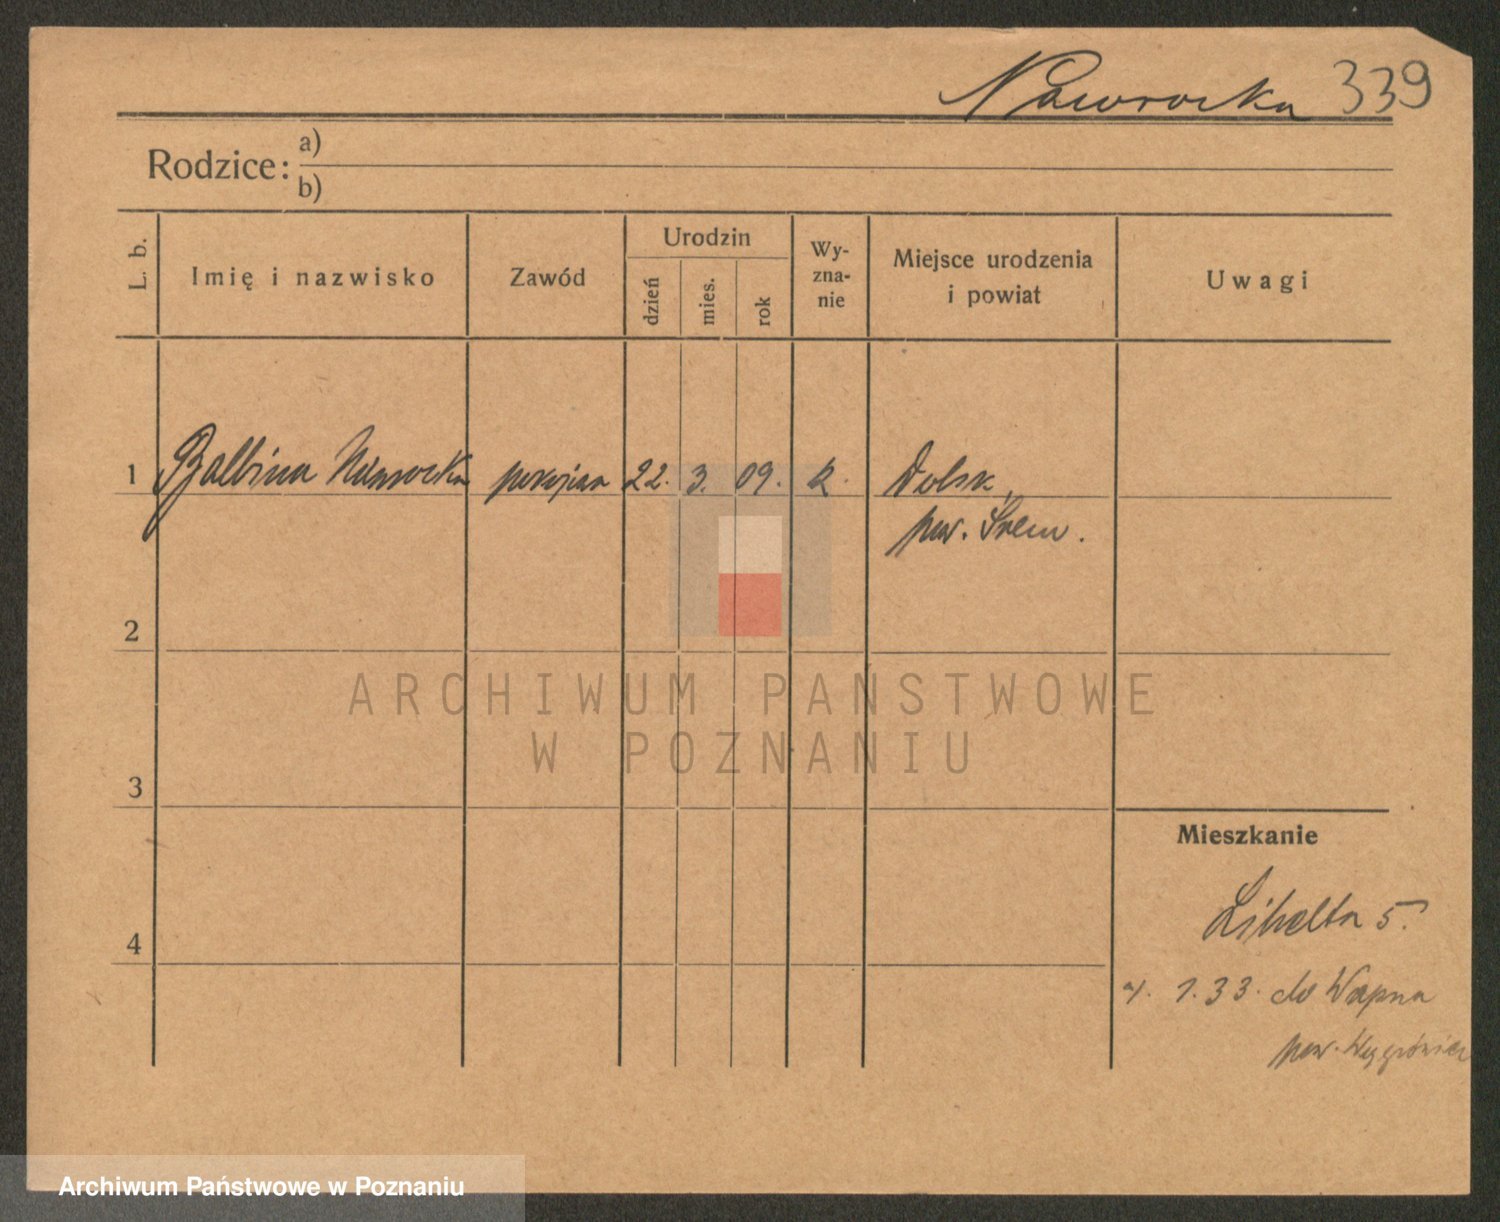 Nawrocka 339
Rodzice: a)
b)
L. b.
Imię i nazwisko
Zawód
Urodzin
dzień
mies.
rok
Wy-
zna-
nie
Miejsce urodzenia
i powiat
Uwagi
1 Balbina Nawrocka pokojowa 22. 3. 09. k. Dolsk,
pow. Śrem.
2
3
4
Mieszkanie
Libelta 5.
1.33. do Wapna
pow. Wągrówiec
ARCHIWUM PAŃSTWOWE
W POZNANIU
Archiwum Państwowe w Poznaniu